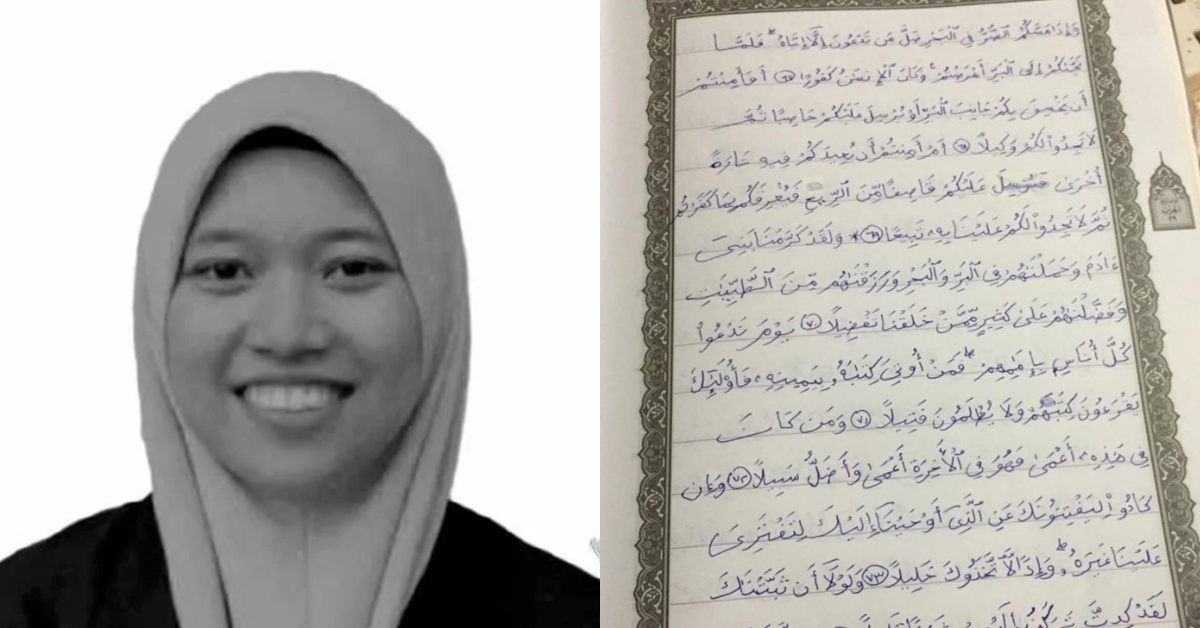 وَإِذَا مَسَّكُمُ ٱلضُّرُّ فِي ٱلْبَحْرِ ضَلَّ مَن تَدْعُونَ إِلَّآ إِيَّاهُ ۖ فَلَمَّا
نَجَّىٰكُمْ إِلَى ٱلْبَرِّ أَعْرَضْتُمْ ۚ وَكَانَ ٱلْإِنسَٰنُ كَفُورًا ٦٧ أَفَأَمِنتُمْ
أَن يَخْسِفَ بِكُمْ جَانِبَ ٱلْبَرِّ أَوْ يُرْسِلَ عَلَيْكُمْ حَاصِبًا ثُمَّ
لَا تَجِدُوا۟ لَكُمْ وَكِيلًا ٦٨ أَمْ أَمِنتُمْ أَن يُعِيدَكُمْ فِيهِ تَارَةً
أُخْرَىٰ فَيُرْسِلَ عَلَيْكُمْ قَاصِفًا مِّنَ ٱلرِّيحِ فَيُغْرِقَكُم بِمَا كَفَرْتُمْ
ثُمَّ لَا تَجِدُوا۟ لَكُمْ عَلَيْنَا بِهِۦ تَبِيعًا ٦٩ ۞ وَلَقَدْ كَرَّمْنَا بَنِىٓ
ءَادَمَ وَحَمَلْنَٰهُمْ فِي ٱلْبَرِّ وَٱلْبَحْرِ وَرَزَقْنَٰهُم مِّنَ ٱلطَّيِّبَٰتِ
وَفَضَّلْنَٰهُمْ عَلَىٰ كَثِيرٍ مِّمَّنْ خَلَقْنَا تَفْضِيلًا ٧٠ يَوْمَ نَدْعُوا۟
كُلَّ أُنَاسٍۭ بِإِمَٰمِهِمْ ۖ فَمَنْ أُوتِىَ كِتَٰبَهُۥ بِيَمِينِهِۦ فَأُو۟لَٰٓئِكَ
يَقْرَءُونَ كِتَٰبَهُمْ وَلَا يُظْلَمُونَ فَتِيلًا ٧١ وَمَن كَانَ
فِي هَٰذِهِۦٓ أَعْمَىٰ فَهُوَ فِي ٱلْءَاخِرَةِ أَعْمَىٰ وَأَضَلُّ سَبِيلًا ٧٢ وَإِن
كَادُوا۟ لَيَفْتِنُونَكَ عَنِ ٱلَّذِىٓ أَوْحَيْنَآ إِلَيْكَ لِتَفْتَرِىَ
عَلَيْنَا غَيْرَهُۥ ۖ وَإِذًا لَّٱتَّخَذُوكَ خَلِيلًا ٧٣ وَلَوْلَآ أَن ثَبَّتْنَٰكَ
لَقَدْ كِدتَّ تَرْكَنُ إِلَيْهِمْ